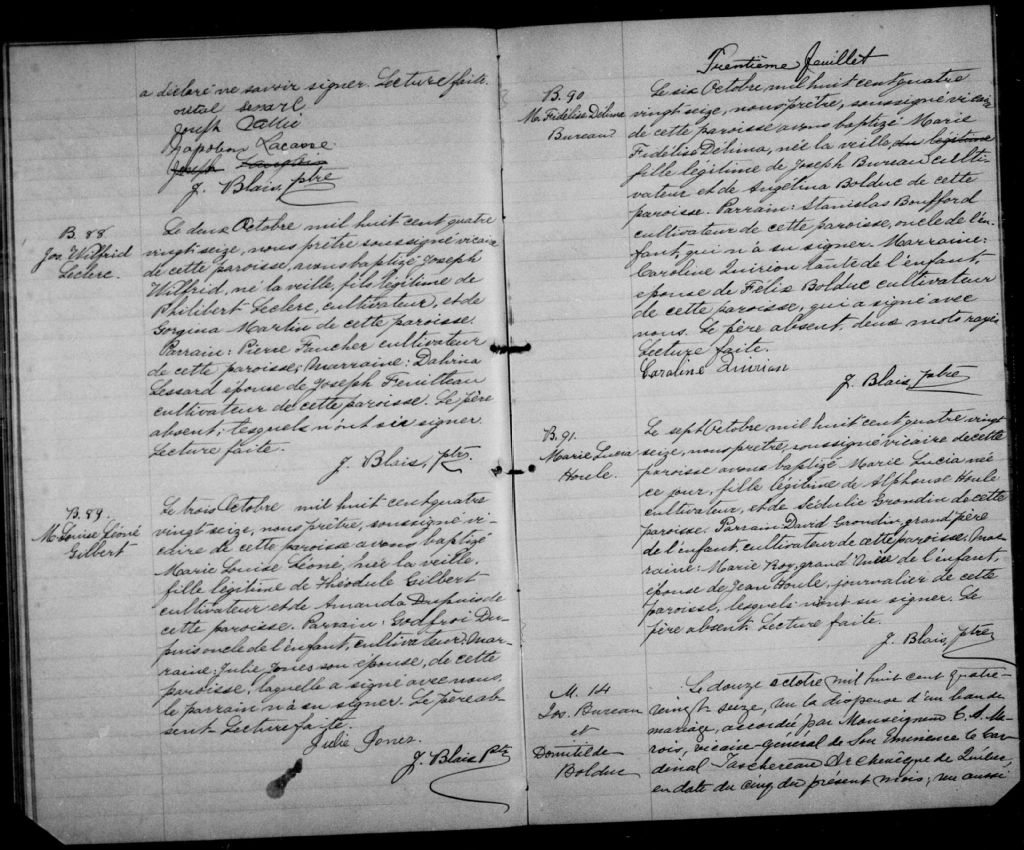 a déclaré ne savoir signer. Lecture faite.
Joseph
Napoléon Lacasse
Joseph
J. Blais, ptre
B. 88
Jos. Wilfrid
Leclerc.
Le deux Octobre mil huit cent quatre
vingt seize, nous prêtre soussigné vicaire
de cette paroisse, avons baptizé Joseph
Wilfrid, né la veille, fils légitime de
Philibert Leclerc, cultivateur, et de
Gorgina Martin de cette paroisse.
Parrain: Pierre Faucher cultivateur
de cette paroisse; Marraine: Dalvina
Lessard épouse de Joseph Feuilteau
cultivateur de cette paroisse. Le père
absent; lesquels n'ont su signer.
Lecture faite.
J. Blais, ptre.
B. 89.
M. Louise Léoné
Gilbert
Le trois Octobre mil huit cent quatre
vingt seize, nous prêtre, soussigné vi-
caire de cette paroisse avons baptizé
Marie Louise Léoné, née la veille,
fille légitime de Théodule Gilbert
cultivateur et de Amanda Dupuis de
cette paroisse. Parrain: Godfroi Du-
puis oncle de l'enfant, cultivateur; Mar-
raine: Julie Jones son épouse, de cette
paroisse, laquelle a signé avec nous,
le parrain n'a su signer. Le père ab-
sent. Lecture faite.
Julie Jones
J. Blais Ptre
Trentième feuillet
B. 90
M. Fidélise Délima
Bureau
Le six Octobre mil huit cent quatre
vingt seize, nous prêtre, soussigné vicaire
de cette paroisse avons baptizé Marie
Fidélise Délima, née la veille, du légitime
fille légitime de Joseph Bureau culti-
vateur et de Angélina Bolduc de cette
paroisse. Parrain: Stanislas Boufford
cultivateur de cette paroisse, oncle de l'en-
fant, qui n'a su signer. Marraine:
Caroline Quirion tante de l'enfant,
épouse de Félix Bolduc cultivateur
de cette paroisse, qui a signé avec
nous. Le père absent. deux mots rayés
Lecture faite.
Caroline Quirion
J. Blais, ptre
B. 91.
Marie Lucia
Houle.
Le sept Octobre mil huit cent quatre vingt
seize, nous prêtre, soussigné vicaire de cette
paroisse avons baptizé Marie Lucia née
ce jour, fille légitime de Alphonse Houle
cultivateur, et de Sédulie Grondin de cette
paroisse. Parrain David Grondin, grand père
de l'enfant, cultivateur de cette paroisse. Mar-
raine: Marie Roy, grand mère de l'enfant,
épouse de Jean Houle, journalier de cette
paroisse, lesquels n'ont su signer. Le
père absent. Lecture faite.
J. Blais, ptre
M. 14
Jos. Bureau
et
Domitilde
Bolduc
Le douze octobre mil huit cent quatre-
vingt seize, vu la dispense d'un ban de
mariage, accordée par Monseigneur C. A. Ma-
rois, vicaire-général de Son Eminence le Car-
dinal Taschereau Archevêque de Québec,
en date du cinq du présent mois; vu aussi